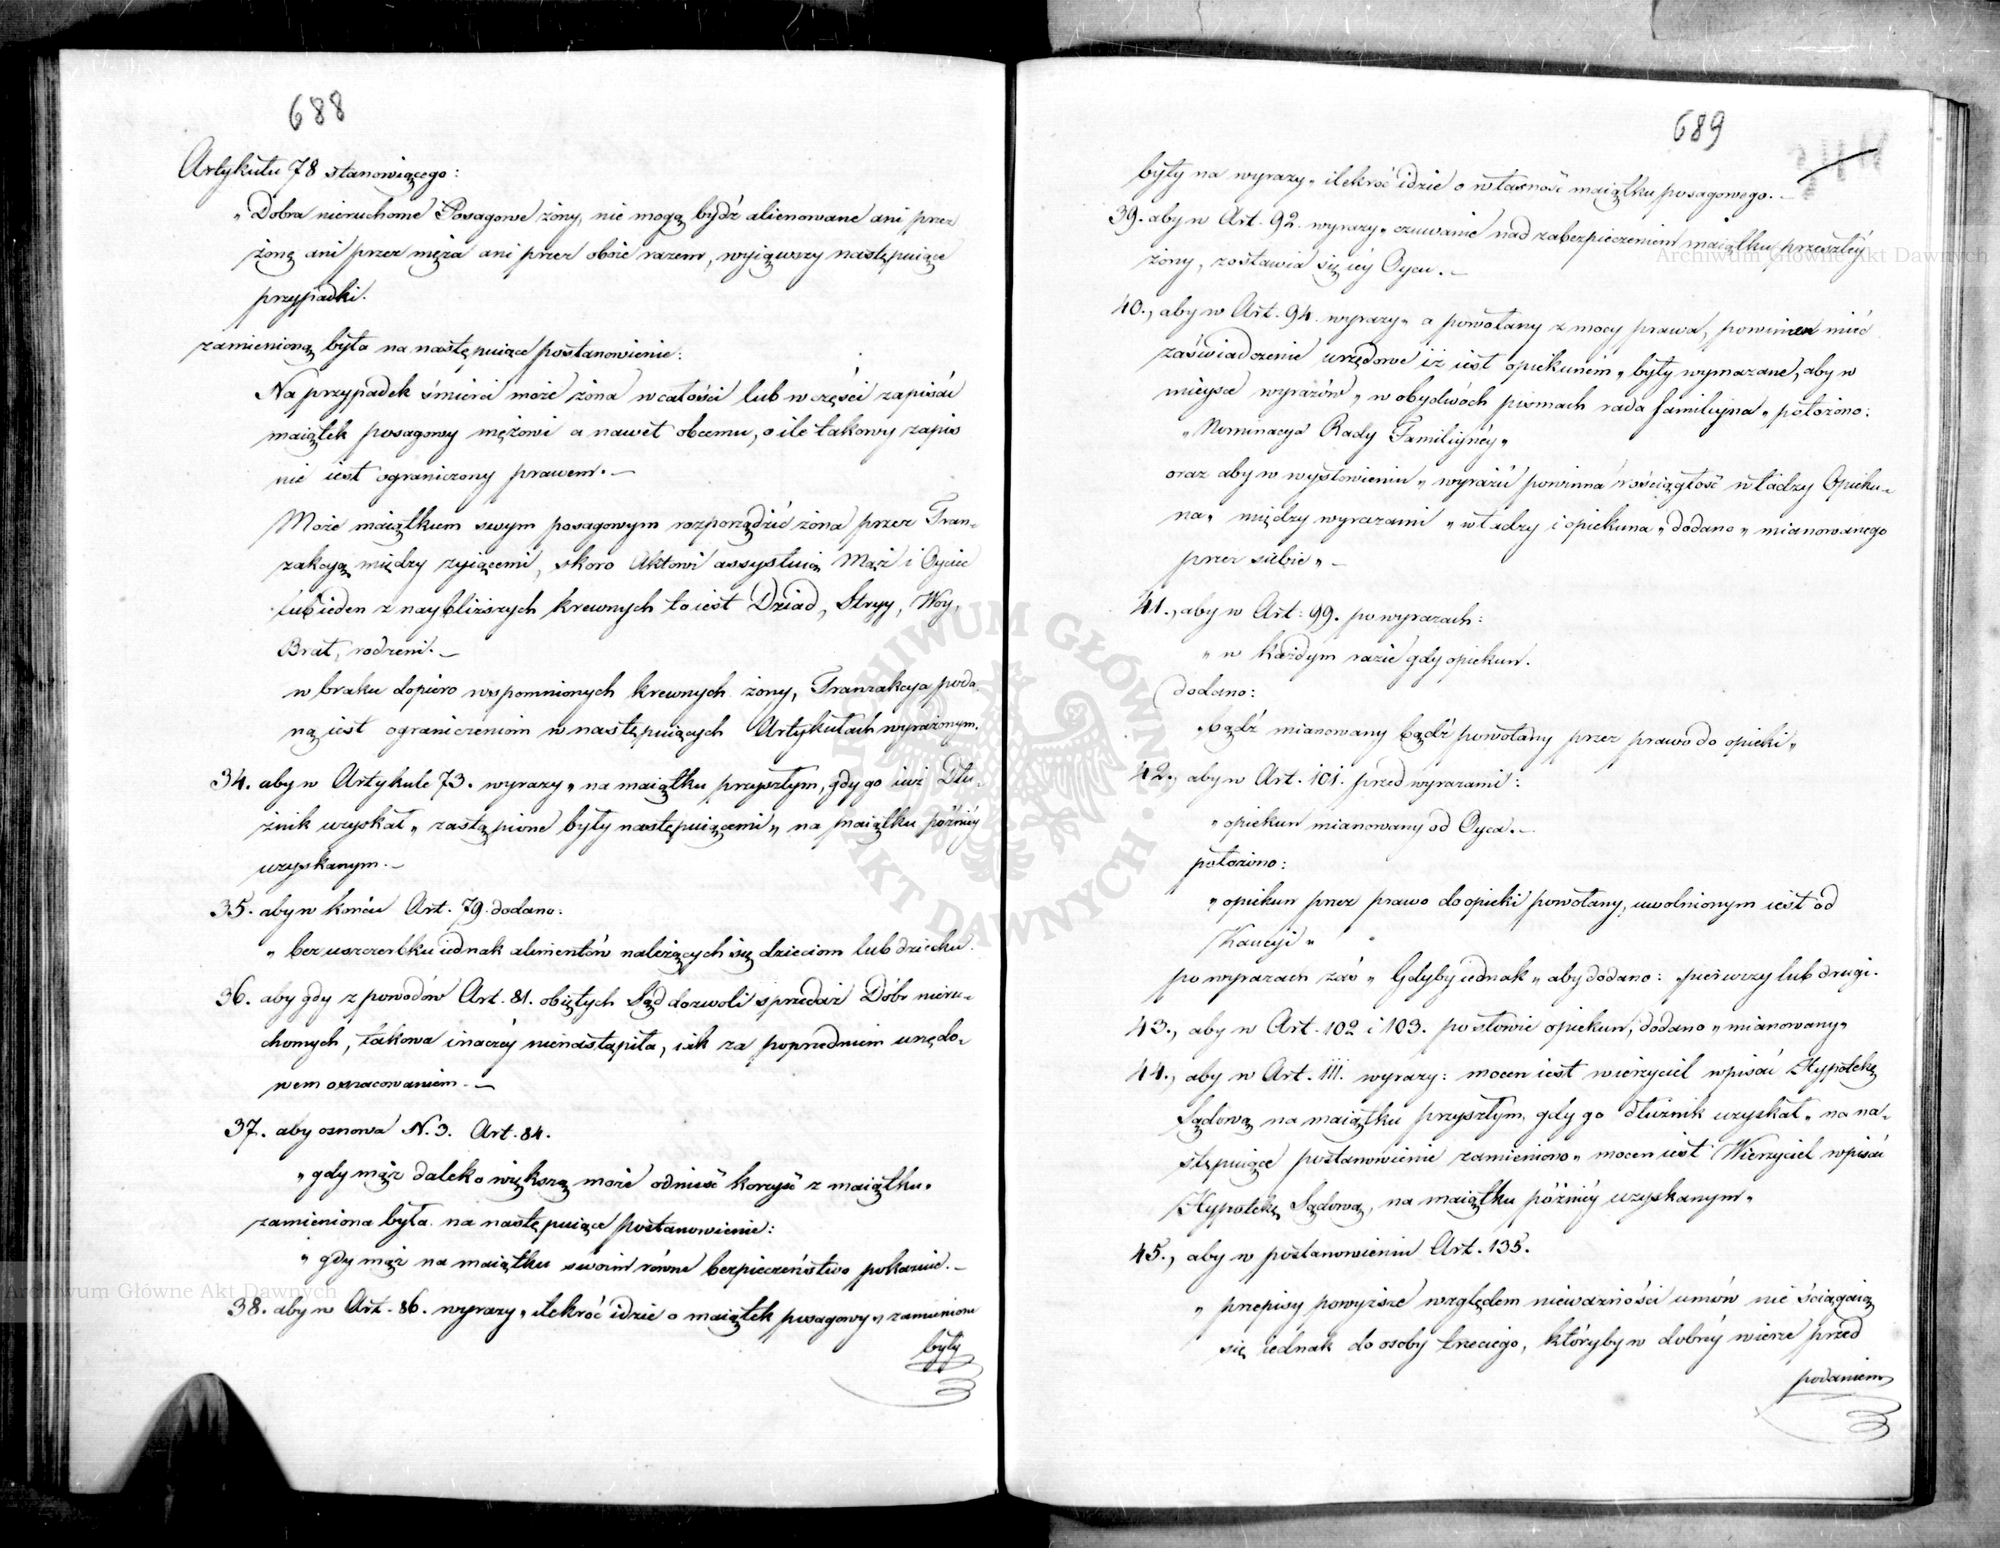 688
Artykułu 78 stanowiącego:
„Dobra nieruchomé Posagowe żony, nie mogą bydź alienowane ani przez
żonę ani przez męża ani przez oboie razem, wyiąwszy następuiące
przypadki.
zamienioną była na następuiące postanowienie:
Na przypadek śmierci może żona w całości lub w części zapisać
maiątek posagowy mężowi a nawet obcemu, o ile takowy zapis
nie iest ograniczony prawem. —
Może maiątkiem swym posagowym rozporządzić żona przez Tran-
zakcyą między żyiącemi, skoro Aktowi assystuią Mąż i Oyciec
lub ieden z naybliższych krewnych to iest Dziad, Stryy, Wuy,
Brat, rodzeni. —
w braku dopiero wspomnionych krewnych żony, Tranzakcya podo
ną iest ograniczeniom w następuiących Artykułach wyrażonym.
34. aby w Artykule 73. wyrazy „na maiątku przyszłym, gdy go iuż Dłu-
żnik uzyskał„ zastąpione były następuiącemi„ na maiątku późniéy
uzyskanym. —
35. aby w końcu Art. 79. dodano:
„bez uszczerbku iednak alimentów należących się dzieciom lub dziecku.
36. aby gdy z powodów Art. 81. obiętych Sąd dozwoli sprzedaż Dóbr nieru-
chomych, takowa inaczéy nienastąpiła, iak za poprzedniem urzędo-
wem oszacowaniem. —
37. aby osnowa N. 3. Art. 84.
„gdy mąż daleko większą może odnieść korzyść z maiątku„
zamieniona była na następuiące postanowienie:
„gdy mąż na maiątku swoim równe bezpieczeństwo pokazuie. —
38. aby w Art. 86. wyrazy „ilekroć idzie o maiątek posagowy„ zamienione
były
689
były na wyrazy„ ilekroć idzie o własność maiątku posagowego. —
39. aby w Art. 92. wyrazy„ czuwanie nad zabezpieczeniem maiątku przeszłéy
żony, zostawia się iéy Oycu. —
40., aby w Art. 94. wyrazy„ a powołany z mocy prawa, powinien mieć
zaświadczenie urzędowe iż iest opiekunem„ były wymazane, aby w
mieysce wyrazów„ w obydwóch pismach rada familiyna„ położono:
„Nominacya Rady Familiynéy„
oraz aby w wysłowieniu„ wyrazić powinna rościągłość władzy Opieku-
na„ między wyrazami„ władzy i opiekuna„ dodano„ mianowanego
przez siebie„ —
41., aby w Art: 99. po wyrazach:
„w każdym razie gdy opiekun.
dodano:
„bądź mianowany bądź powołany przez prawo do opieki„
42., aby w Art. 101. przed wyrazami:
„opiekun mianowany od Oyca. —
położono:
„opiekun przez prawo do opieki powołany, uwolnionym iest od
Kaucyi„
po wyrazach zaś„ Gdyby iednak„ aby dodano: „pierwszy lub drugi.
43., aby w Art. 102 i 103. po słowie opiekun, dodano„ mianowany„
44., aby w Art. 111. wyrazy: mocen iest wierzyciel wpisać Hypotekę
Sądową na maiątku przyszłym, gdy go dłużnik uzyskał„ na na-
stępuiące postanowienie zamieniono„ mocen iest Wierzyciel wpisać
Hypotekę Sądową, na maiątku późniéy uzyskanym„
45., aby w postanowieniu Art. 135.
„przepisy powyższe względem nieważności umów nie ściągaią
się iednak do osoby trzeciego, któryby w dobréy wierze przed
podaniem
Archiwum Główne Akt Dawnych
Archiwum Główne Akt Dawnych
ARCHIWUM GŁÓWNE AKT DAWNYCH